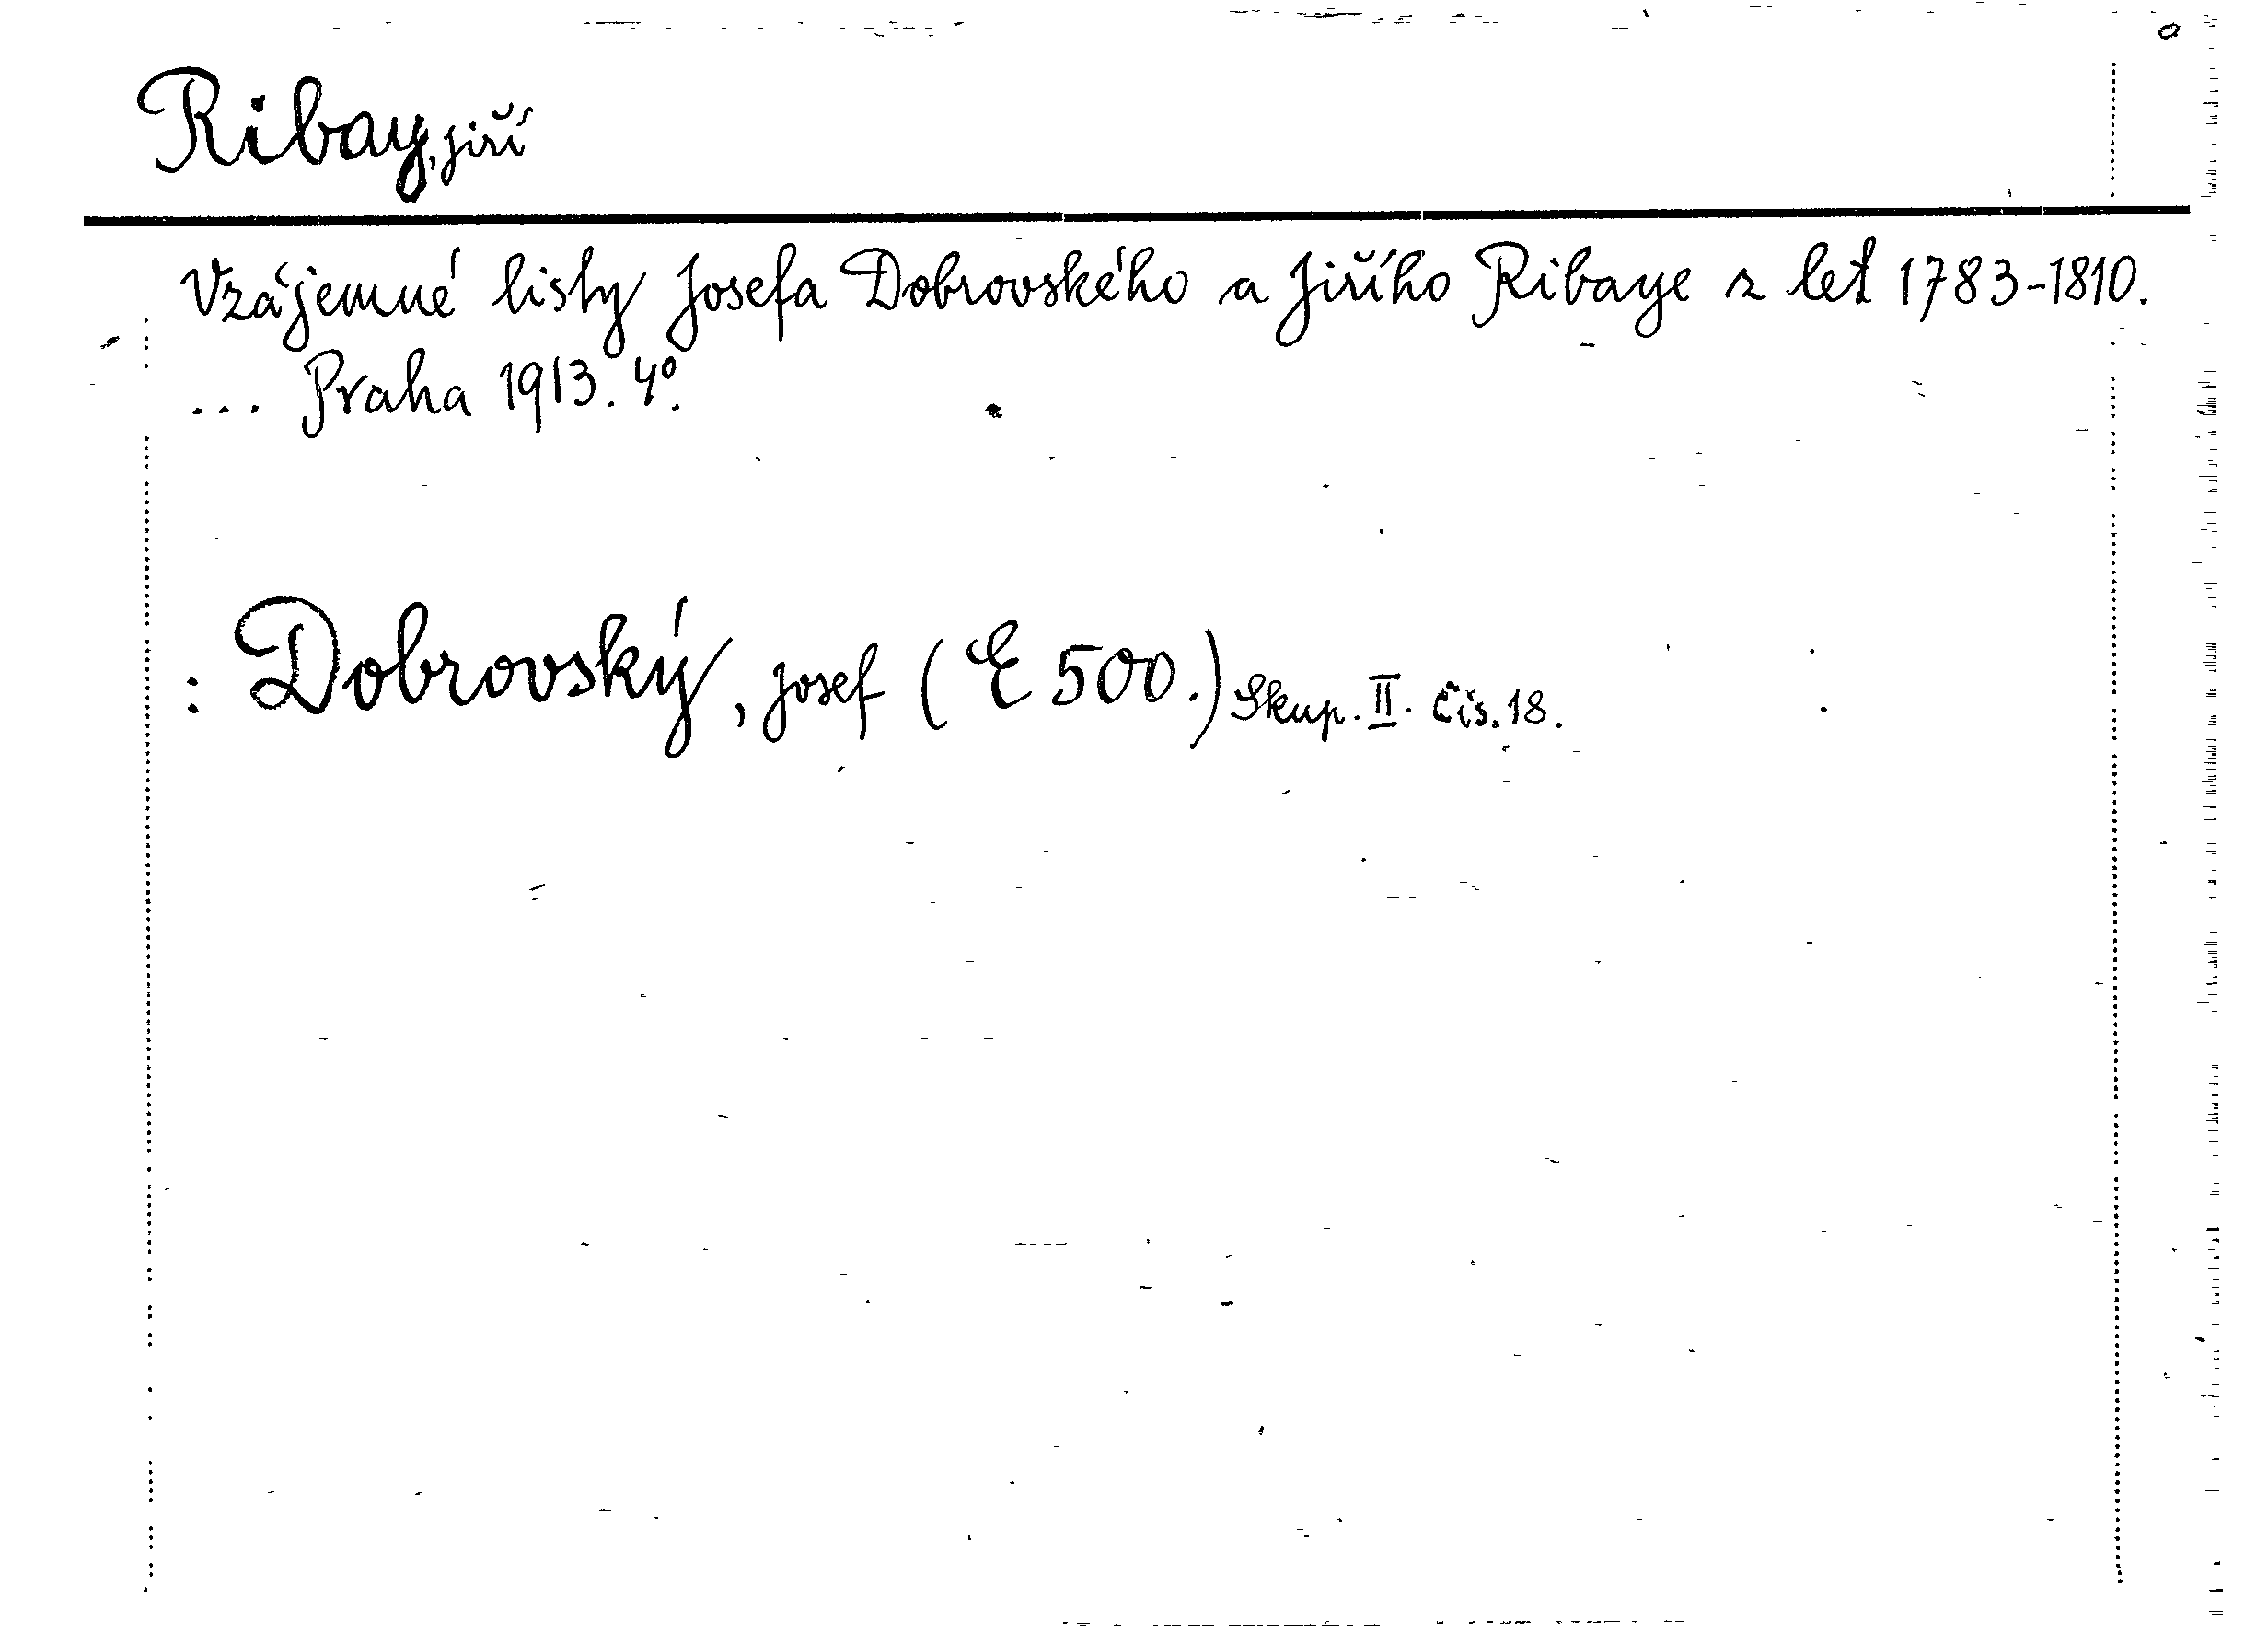 Ribay, Jiří
Vzájemné listy Josefa Dobrovského a Jiřího Ribaye z let 1783-1810.
... Praha 1913. 4°.
: Dobrovský, Josef (E 500.) Skup. II. Čís. 18.